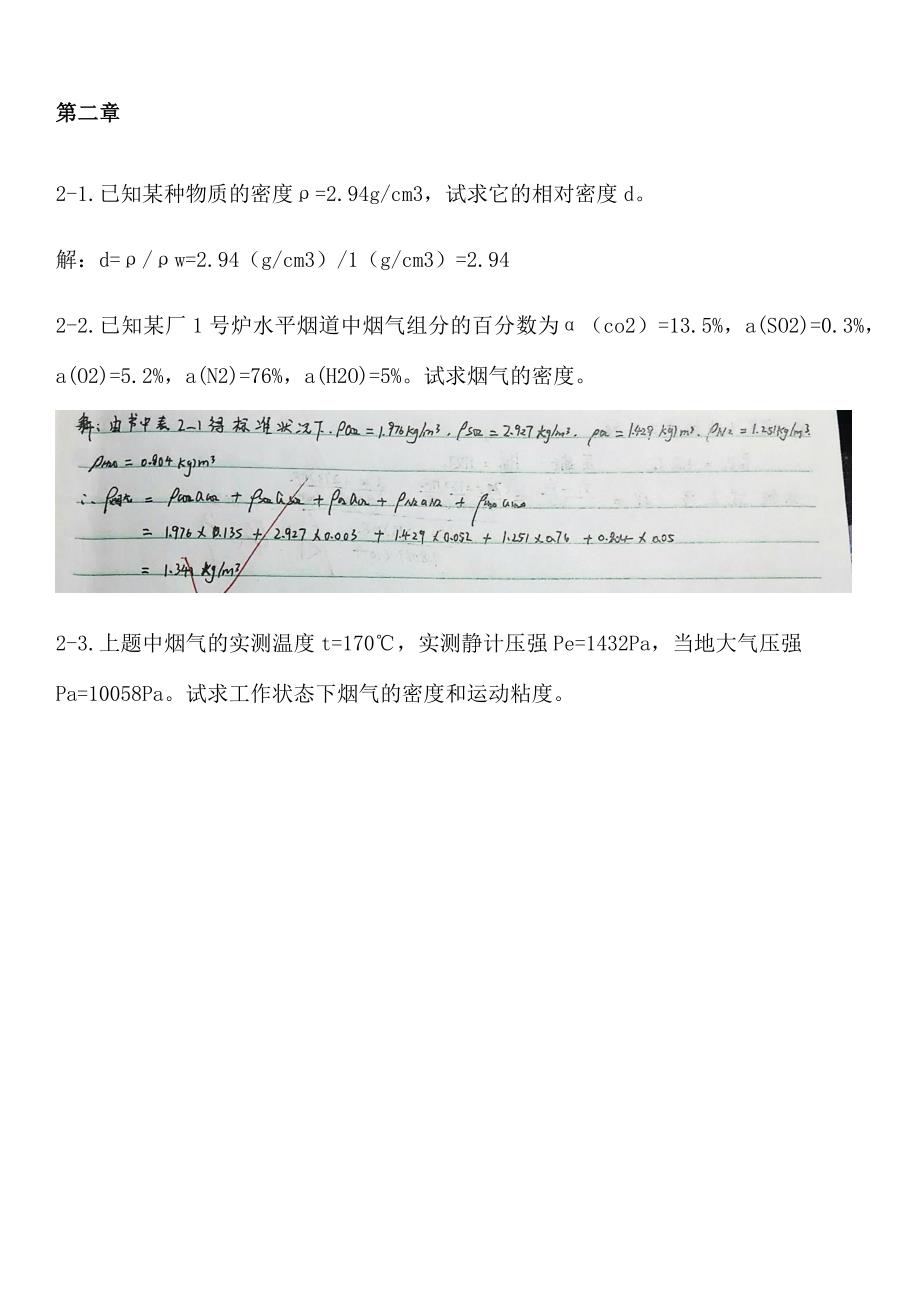 第二章
2-1.已知某种物质的密度ρ=2.94g/cm3，试求它的相对密度 d。
解：d=ρ/ρw=2.94（g/cm3）/1（g/cm3）=2.94
2-2.已知某厂 1 号炉水平烟道中烟气组分的百分数为α（co2）=13.5%，a(SO2)=0.3%，
a(O2)=5.2%，a(N2)=76%，a(H2O)=5%。试求烟气的密度。
解：由书中表2-1得标准状况下.ρCO2=1.976kg/m³，ρSO2=2.927kg/m³，ρO2=1.429kg/m³. ρN2=1.251kg/m³.
ρH2O=0.804kg/m³
∴ρ烟气 = ρCO2aCO2 + ρSO2aSO2 + ρO2aO2 + ρN2aN2 + ρH2OaH2O
= 1.976×0.135 + 2.927×0.003 + 1.429×0.052 + 1.251×0.76 + 0.804×0.05
= 1.341 kg/m³
2-3.上题中烟气的实测温度 t=170℃，实测静计压强 Pe=1432Pa，当地大气压强
Pa=10058Pa。试求工作状态下烟气的密度和运动粘度。